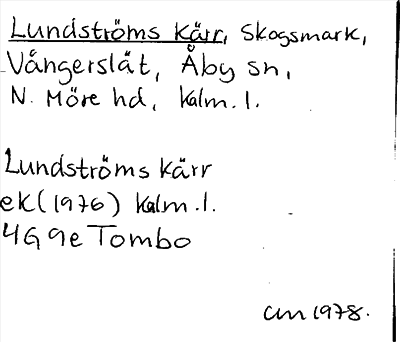 Lundströms kärr, Skogsmark,
Vångerslät, Åby sn,
N. Möre hd, Kalm. l.
Lundströms kärr
ek (1976) Kalm. l.
4G 9e Tombo
CM 1978.